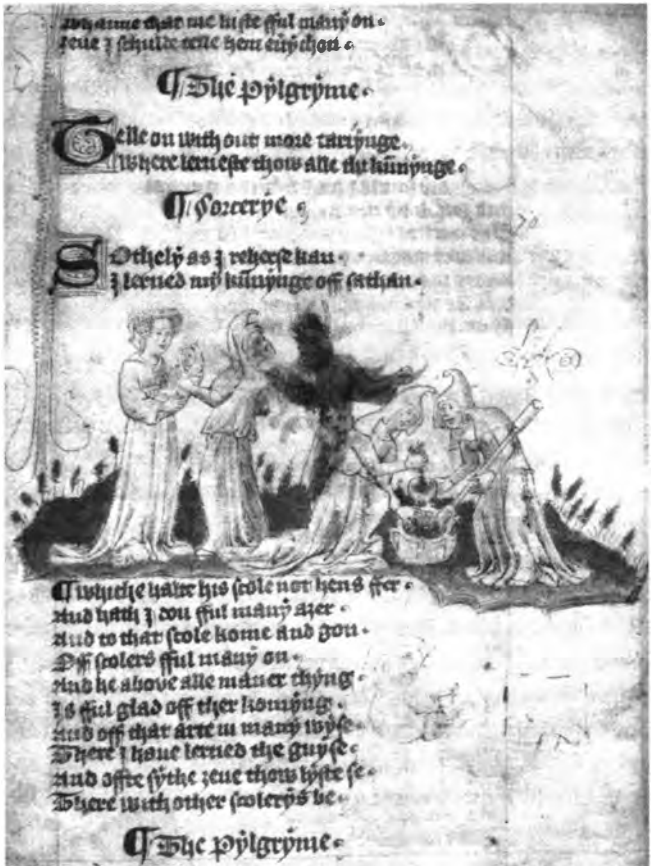 Whanne that me liste fful manẏ on
zeue I schulde telle hem euẏchon
¶ The pẏlgrẏme
Telle on with out more tariẏnge
Where lerneste thow alle thi kūnẏnge
¶ Sorcerẏe
SOthelẏ as I reherse kan
I lerned mẏ kūnẏnge off sathan
¶ Whiche halte his scole not hens ffer
And hath I dou fful manẏ a zer
And to that scole kome and gon
Off scolers fful manẏ on
And he above alle maner thẏng
Is fful glad off ther komẏng
And off that arte in manẏ wẏse
There I haue lerned the guẏse
And offte sẏthe zeue thow lẏste se
There with other scolerẏs be
¶ The Pẏlgrẏme